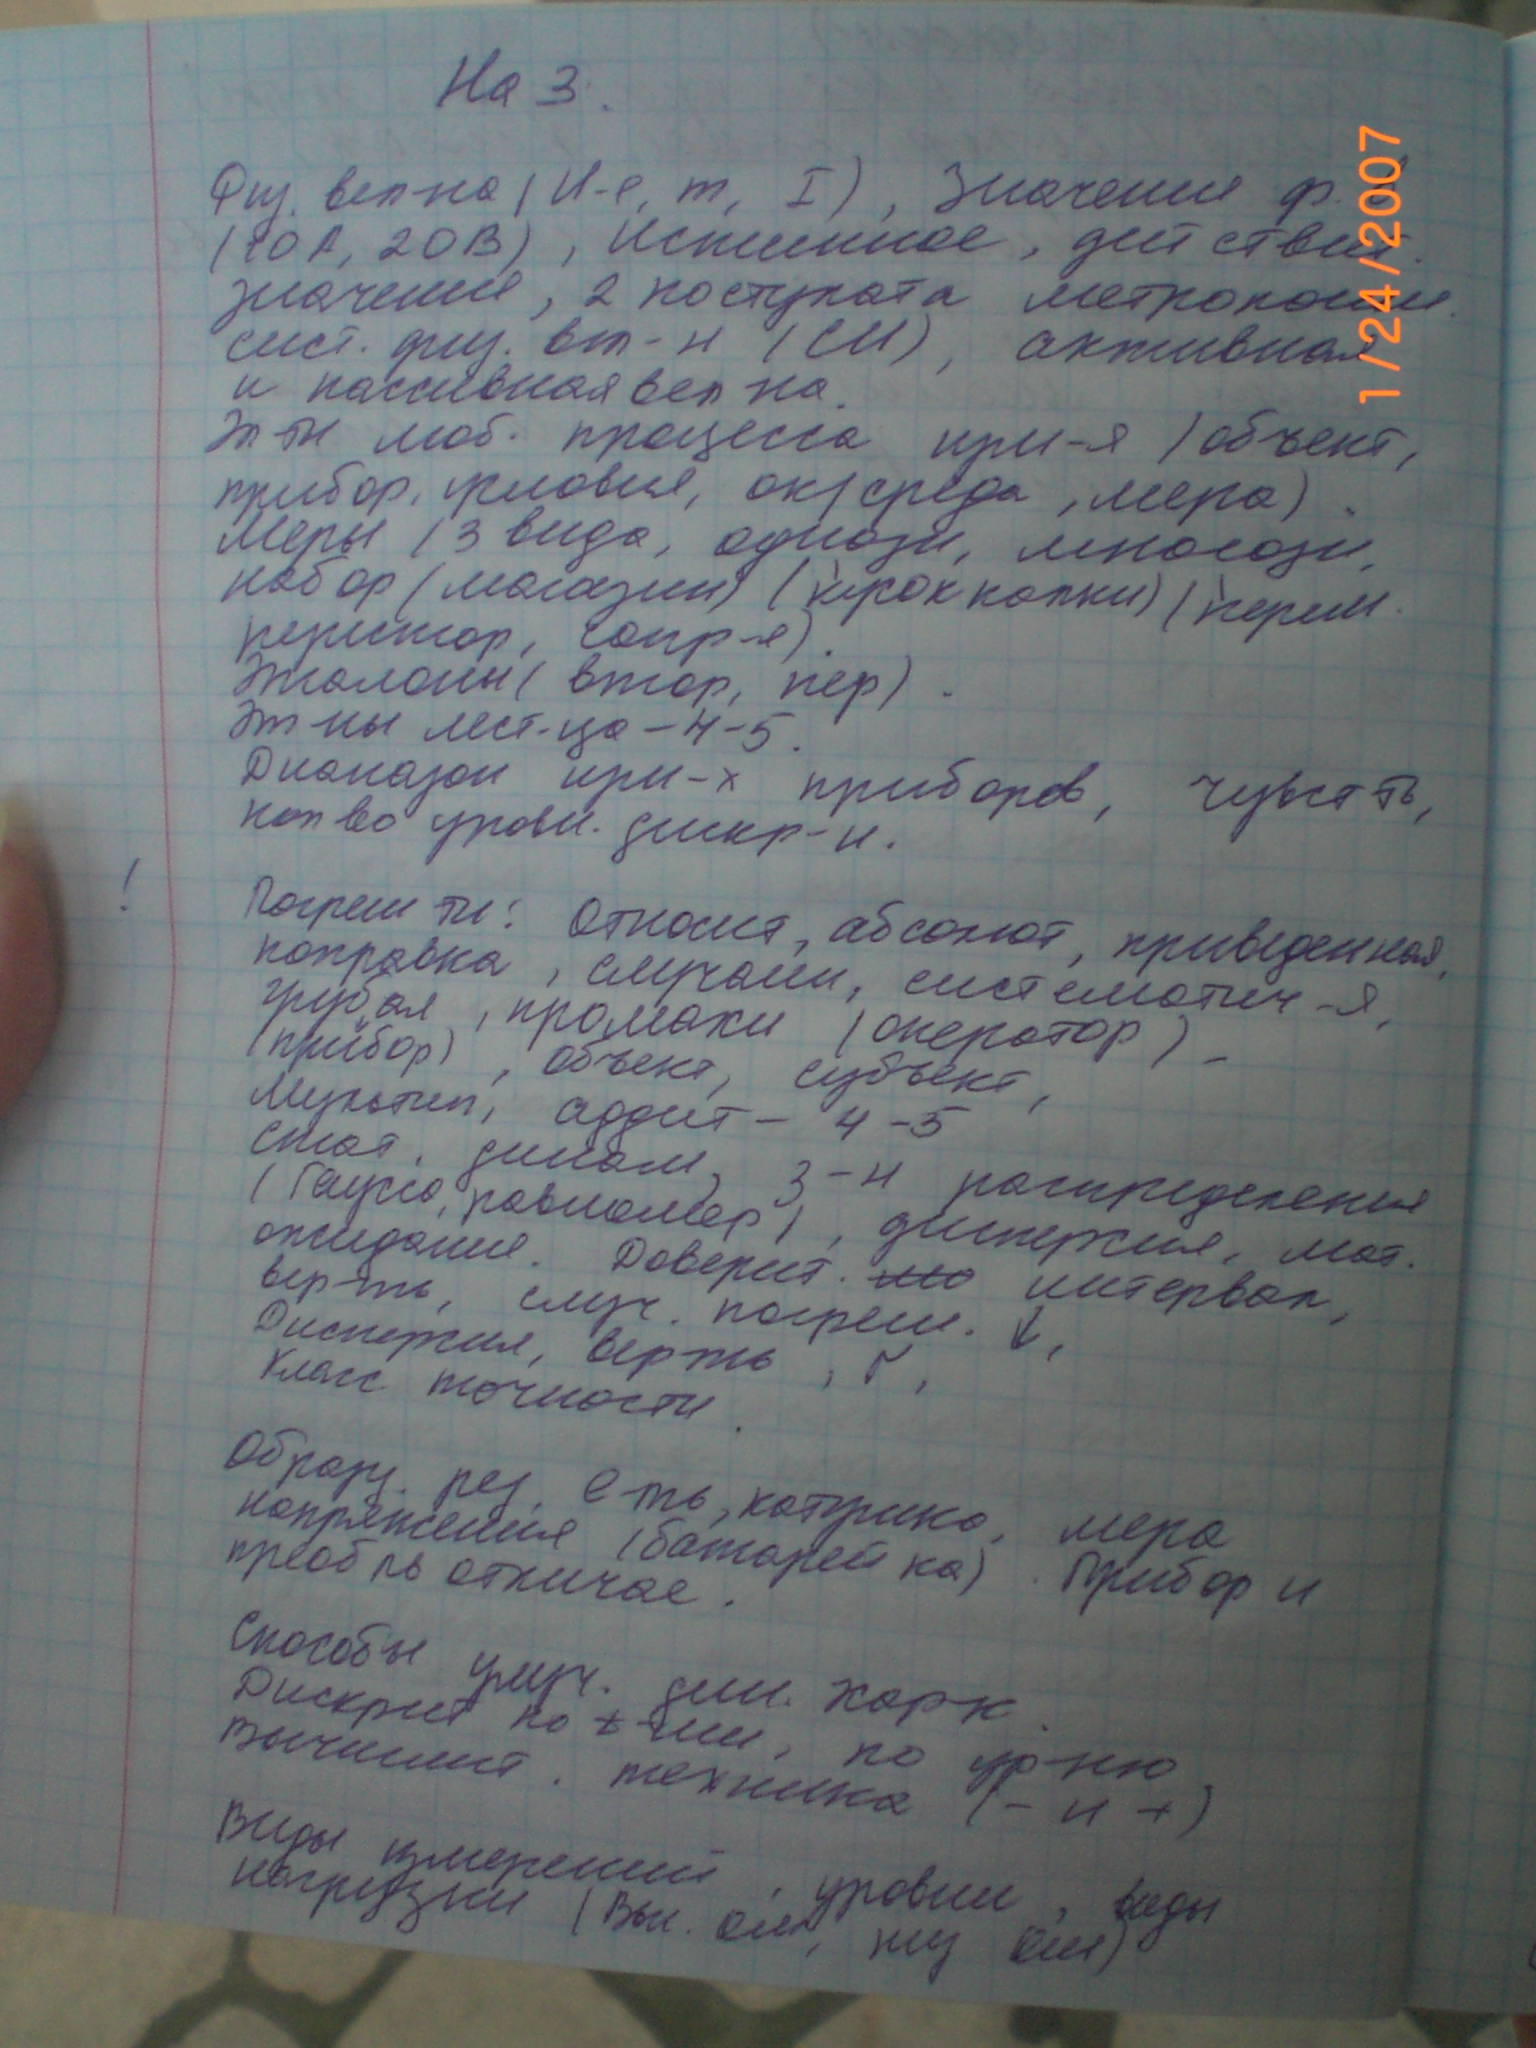 На 3.
Физ. вел-на (И-е, m, I), Значения ф.
(10А, 20В), Истинное, действит.
значения, 2 постулата метрологии.
сист. физ. вел-н (СИ), активная
и пассивная вел-на.
Эл-ты люб. процесса изм-я (объект,
прибор, условия, окр среда, мера).
Меры (3 вида, однозн, многозн,
набор (магазин) (перем.
резистор, сопр-я).
Эталоны (втор, пер).
Эт-ны лест-ца - 4-5.
Диапазон изм-х приборов, чувст ть,
кол во уровн. дискр-и.
!
Погреш ти: Относит, абсолют, приведенная,
поправка, случайн, систематич-я,
грубая, промахи (оператор) -
(прибор), объект, субъект,
Мультип, аддит - 4-5
стат. динам, з-н распределения
(Гаусса, равномер), дисперсия, мат.
ожидание. Доверит. интервал,
вер-ть, случ. погреш. ↓,
Дисперсия, вер-ть,
Класс точности.
Образц. рез, е-ть, катушка, мера
напряжения (батарейка). Прибор и
преобр ль отличае.
Способы улуч. дин. Хар к.
Дискрет по t-ни, по ур-ню
Вычислит. техника (- и +)
Виды измерений, уровни, виды
нагрузки (Вы. Ом, низ Ом)
1/24/2007